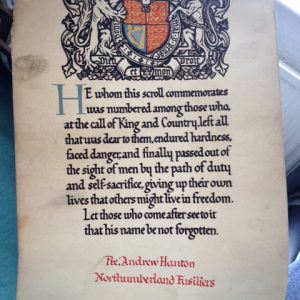 Dieu et mon droit
HE whom this scroll commemorates
was numbered among those who,
at the call of King and Country, left all
that was dear to them, endured hardness,
faced danger, and finally passed out of
the sight of men by the path of duty
and self-sacrifice, giving up their own
lives that others might live in freedom.
Let those who come after see to it
that his name be not forgotten.
Pte. Andrew Hanton
Northumberland Fusiliers